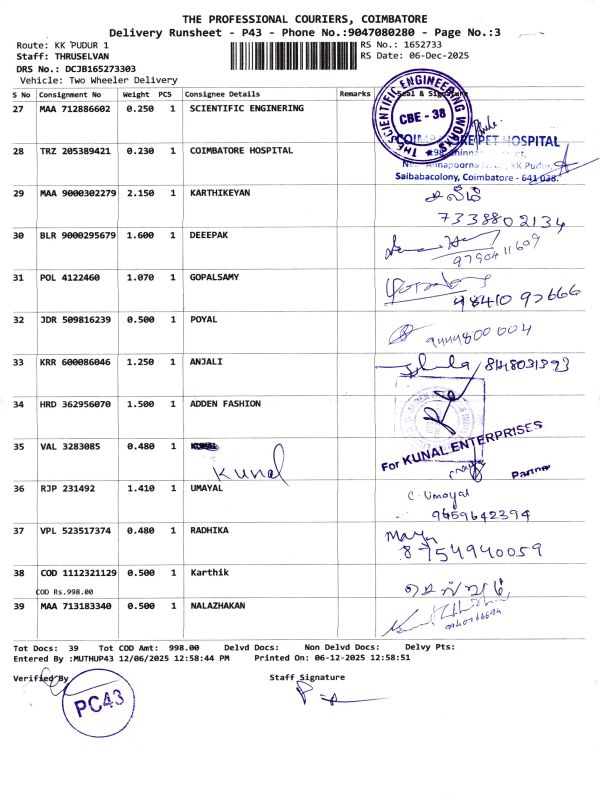 THE PROFESSIONAL COURIERS, COIMBATORE
Delivery Runsheet - P43 - Phone No.:9047080280 - Page No.:3
Route: KK PUDUR 1
RS No.: 1652733
Staff: THRUSELVAN
RS Date: 06-Dec-2025
DRS No.: DCJB165273303
Vehicle: Two Wheeler Delivery
S No Consignment No Weight PCS Consignee Details Remarks Seal & Signature
27 MAA 712886602 0.250 1 SCIENTIFIC ENGINERING
THE SCIENTIFIC ENGINEERING WORKS
CBE - 38
COIMBATORE PET HOSPITAL
28 TRZ 205389421 0.230 1 COIMBATORE HOSPITAL
Annapoorna KK Pudur,
Saibabacolony, Coimbatore - 641 038.
29 MAA 9000302279 2.150 1 KARTHIKEYAN
7338802134
30 BLR 9000295679 1.600 1 DEEEPAK
9790411609
31 POL 4122460 1.070 1 GOPALSAMY
98410 92666
32 JDR 509816239 0.500 1 POYAL
9444800004
33 KRR 600086046 1.250 1 ANJALI
34 HRD 362956070 1.500 1 ADDEN FASHION
35 VAL 3283085 0.480 1
Kunal
For KUNAL ENTERPRISES
Partner
36 RJP 231492 1.410 1 UMAYAL
C. Umayal
9659642394
37 VPL 523517374 0.480 1 RADHIKA
8754940059
38 COD 1112321129 0.500 1 Karthik
COD Rs.998.00
39 MAA 713183340 0.500 1 NALAZHAKAN
Tot Docs: 39 Tot COD Amt: 998.00 Delvd Docs: Non Delvd Docs: Delvy Pts:
Entered By :MUTHUP43 12/06/2025 12:58:44 PM Printed On: 06-12-2025 12:58:51
Verified By
Staff Signature
PC43